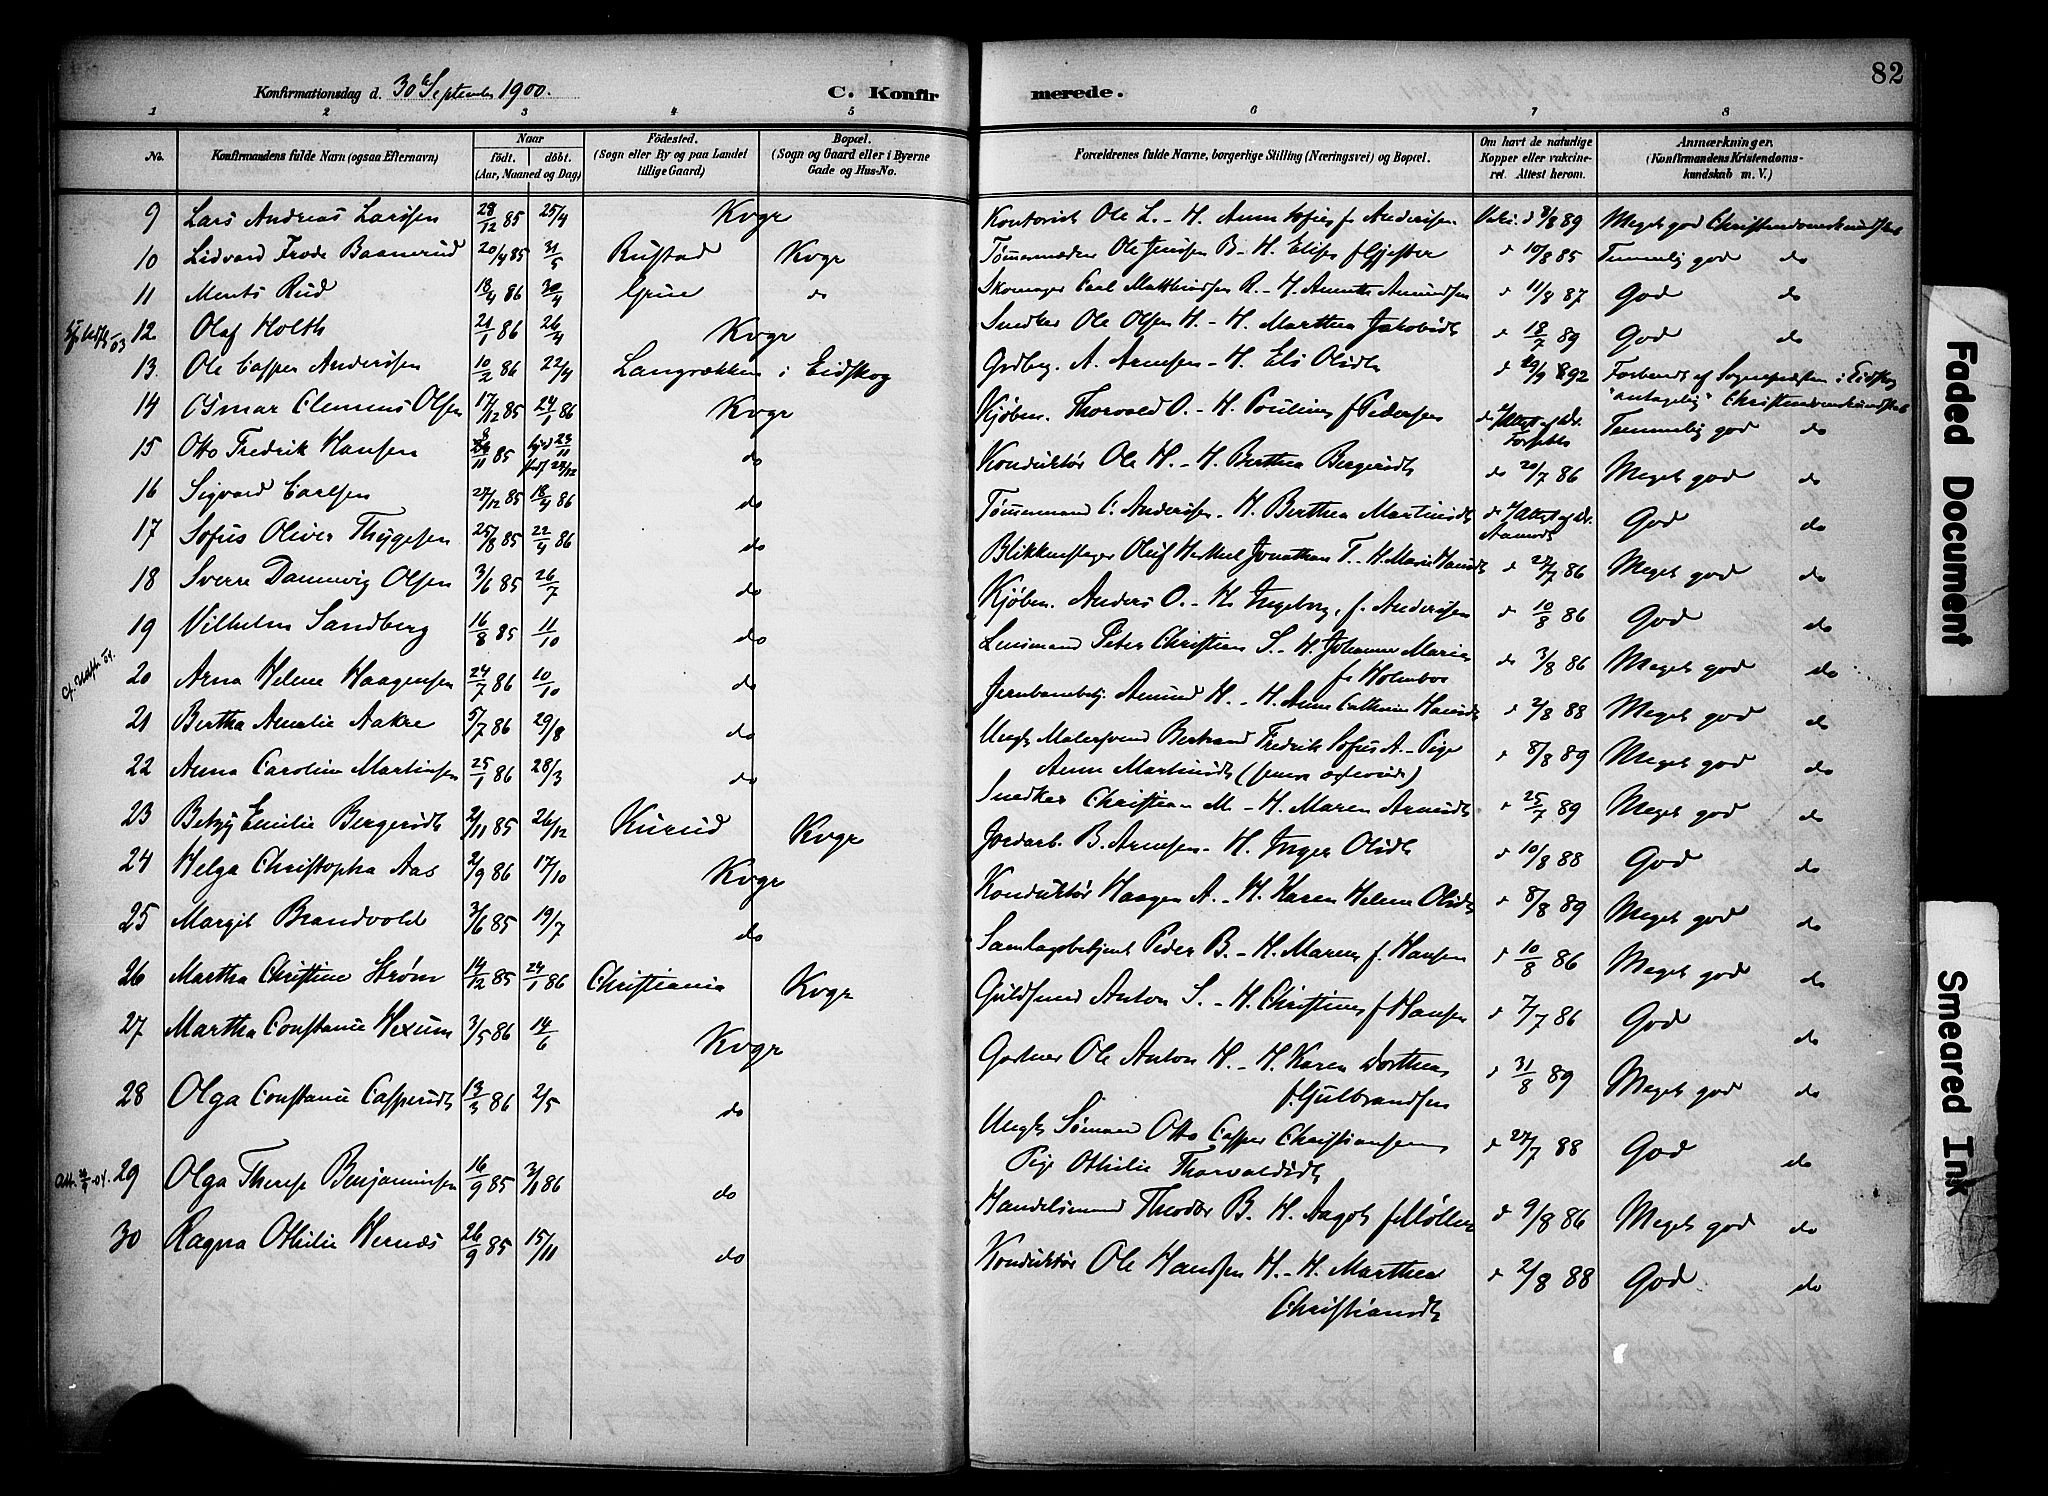 82
Konfirmationsdag d. 30te September 1900.
C. Konfirmerede.
1 2 3 4 5 6 7 8
No. Konfirmandens fulde Navn (ogsaa Efternavn) Naar født. døbt. (Aar, Maaned og Dag) Fødested. (Sogn eller By og paa Landet tillige Gaard) Bopæl. (Sogn og Gaard eller i Byerne Gade og Hus-No. Forældrenes fulde Navne, borgerlige Stilling (Næringsvei) og Bopæl. Om havt de naturlige Kopper eller vakcineret. Attest herom. Anmærkninger. (Konfirmandens Kristendomskundskab m. V.)
9 Lars Andreas Larssen 28/12 85 25/4 Kvgr Kontorist Ole L. - H. Anne Sofie f. Anderssen Vakc. d 8/8 89 Meget god Christendomskundskab
10 Lidvard Frode Baanerud 20/4 85 31/5 Rustad Kvgr Ole Jenssen B - H. Elise f Gjester d 10/8 85 Temmelig god do
11 Ments Rud 18/4 86 30/4 Grue do Skomager Carl Matthiassen R. - H. Annette Amundsen d 11/8 87 God do
12 Olaf Holth 21/1 86 26/4 Kvgr Snedker Ole Olsen H. - H. Marthea Jakobsdt d 18/7 89 God do
13. Ole Casper Anderssen 10/2 86 22/4 Langrækken i Eidskog Grdbrg. A. Arnesen - H. Els Olsdt d 29/9 892 Forberedt af Sognepræsten i Eidskog "antagelig" Christendomskundskab
14 Osmar Clemens Olsen 17/12 85 24/1 86 Kvgr Kjøbm. Thorvald O. - H. Pouline f Pedersen d. Attest af Dr. Forseth Temmelig god do
15 Otto Fredrik Hansen 8/11 85 hjd 23/11 stadf 28/12 do Konduktør Ole H. - H. Berthea Bergersdt do 20/7 86 Meget god do
16 Sigvard Carlsen 27/12 85 18/4 86 do Tømmermand C. Anderssen - H. Berthea Martinsdt d. Attest af Dr. Aamodt God do
17 Sofus Oliver Thygesen 25/8 85 22/4 86 do Blikkenslager Oluf Jonathan T. - H. Marie Hansdt d 27/7 86 Meget god do
18 Sverre Dannevig Olsen 3/6 85 26/7 do Kjøbm. Anders O. - H. Ingeborg, f. Anderssen d 10/8 86 God do
19 Vilhelm Sandberg 16/8 85 11/10 do Lensmand Peter Christian S. - H. Johanne Marie f. Holmboe do 3/8 86 Meget god do
20 Arna Helene Haagensen 24/7 86 10/10 do Jernbanebetj. Amund H. - H. Anne Cathrine Hansdt d 2/8 88 Meget god do
21 Bertha Amalie Aakre 5/7 86 29/8 do Ungk Malersvend Bertrand Fredrik Sofus A. - Pige Anne Martinsdt d 8/8 89 Meget god do
22 Anna Caroline Martinsen 25/1 86 28/3 do Snedker Christian M - H. Maren Arnesdt d 25/7 89 Meget god do
23 Betzy Emilie Bergersdt 2/11 85 26/12 Kurud Kvgr Jordarb. B. Arnesen - H. Inger Olsdt d 10/8 88 God do
24 Helga Christopha Aas 2/9 86 17/10 Kvgr Konduktør Haagen A. - H. Karen Helene Olsdt d 8/8 89 Meget god do
25 Margit Brandvold 3/6 85 19/7 do Samlagsbetjent Peder B. - H. Maren f. Hansen d 10/8 86 Meget god do
26 Martha Christine Strøm 14/12 85 24/1 86 Christiania Kvgr Guldsmed Anton S. - H. Christine f Hansen d 7/7 86 God do
27 Martha Constance Hexum 3/5 86 14/6 Kvgr Gartner Ole Anton H. - H. Karen Dorthea f. Gulbrandsen d 31/8 89 Meget god do
28 Olga Constance Caspersdt 13/3 86 2/5 do Ungk Sømand Otto Casper Christiansen Pige Othilie Thorvaldsdt d 27/7 88 God do
Att. -04. 29 Olga Therese Benjaminsen 16/9 85 3/1 86 do Handelsmand Theodor B. H. Aagot f Møller d 9/8 86 Meget god do
30 Ragna Othilie Hernæs 26/9 85 15/11 do Konduktør Ole Hansen H. - H. Marthea Christiansdt d 2/8 88 God. do
Faded Document
Smeared Ink